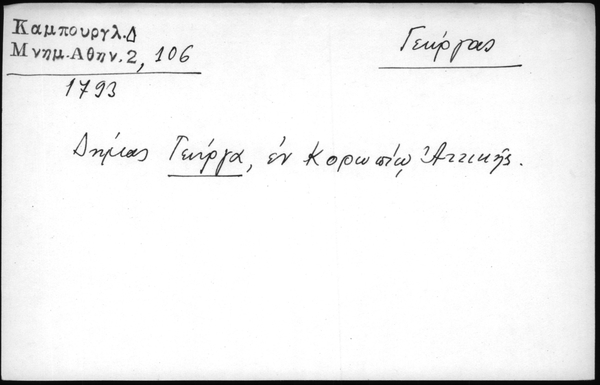 Καμπουργλ.Δ
Μνημ.Αθην.2, 106
1793
Γεώργας
Δημίας Γεώργα, ἐν Κορωπίῳ Ἀττικῆς.